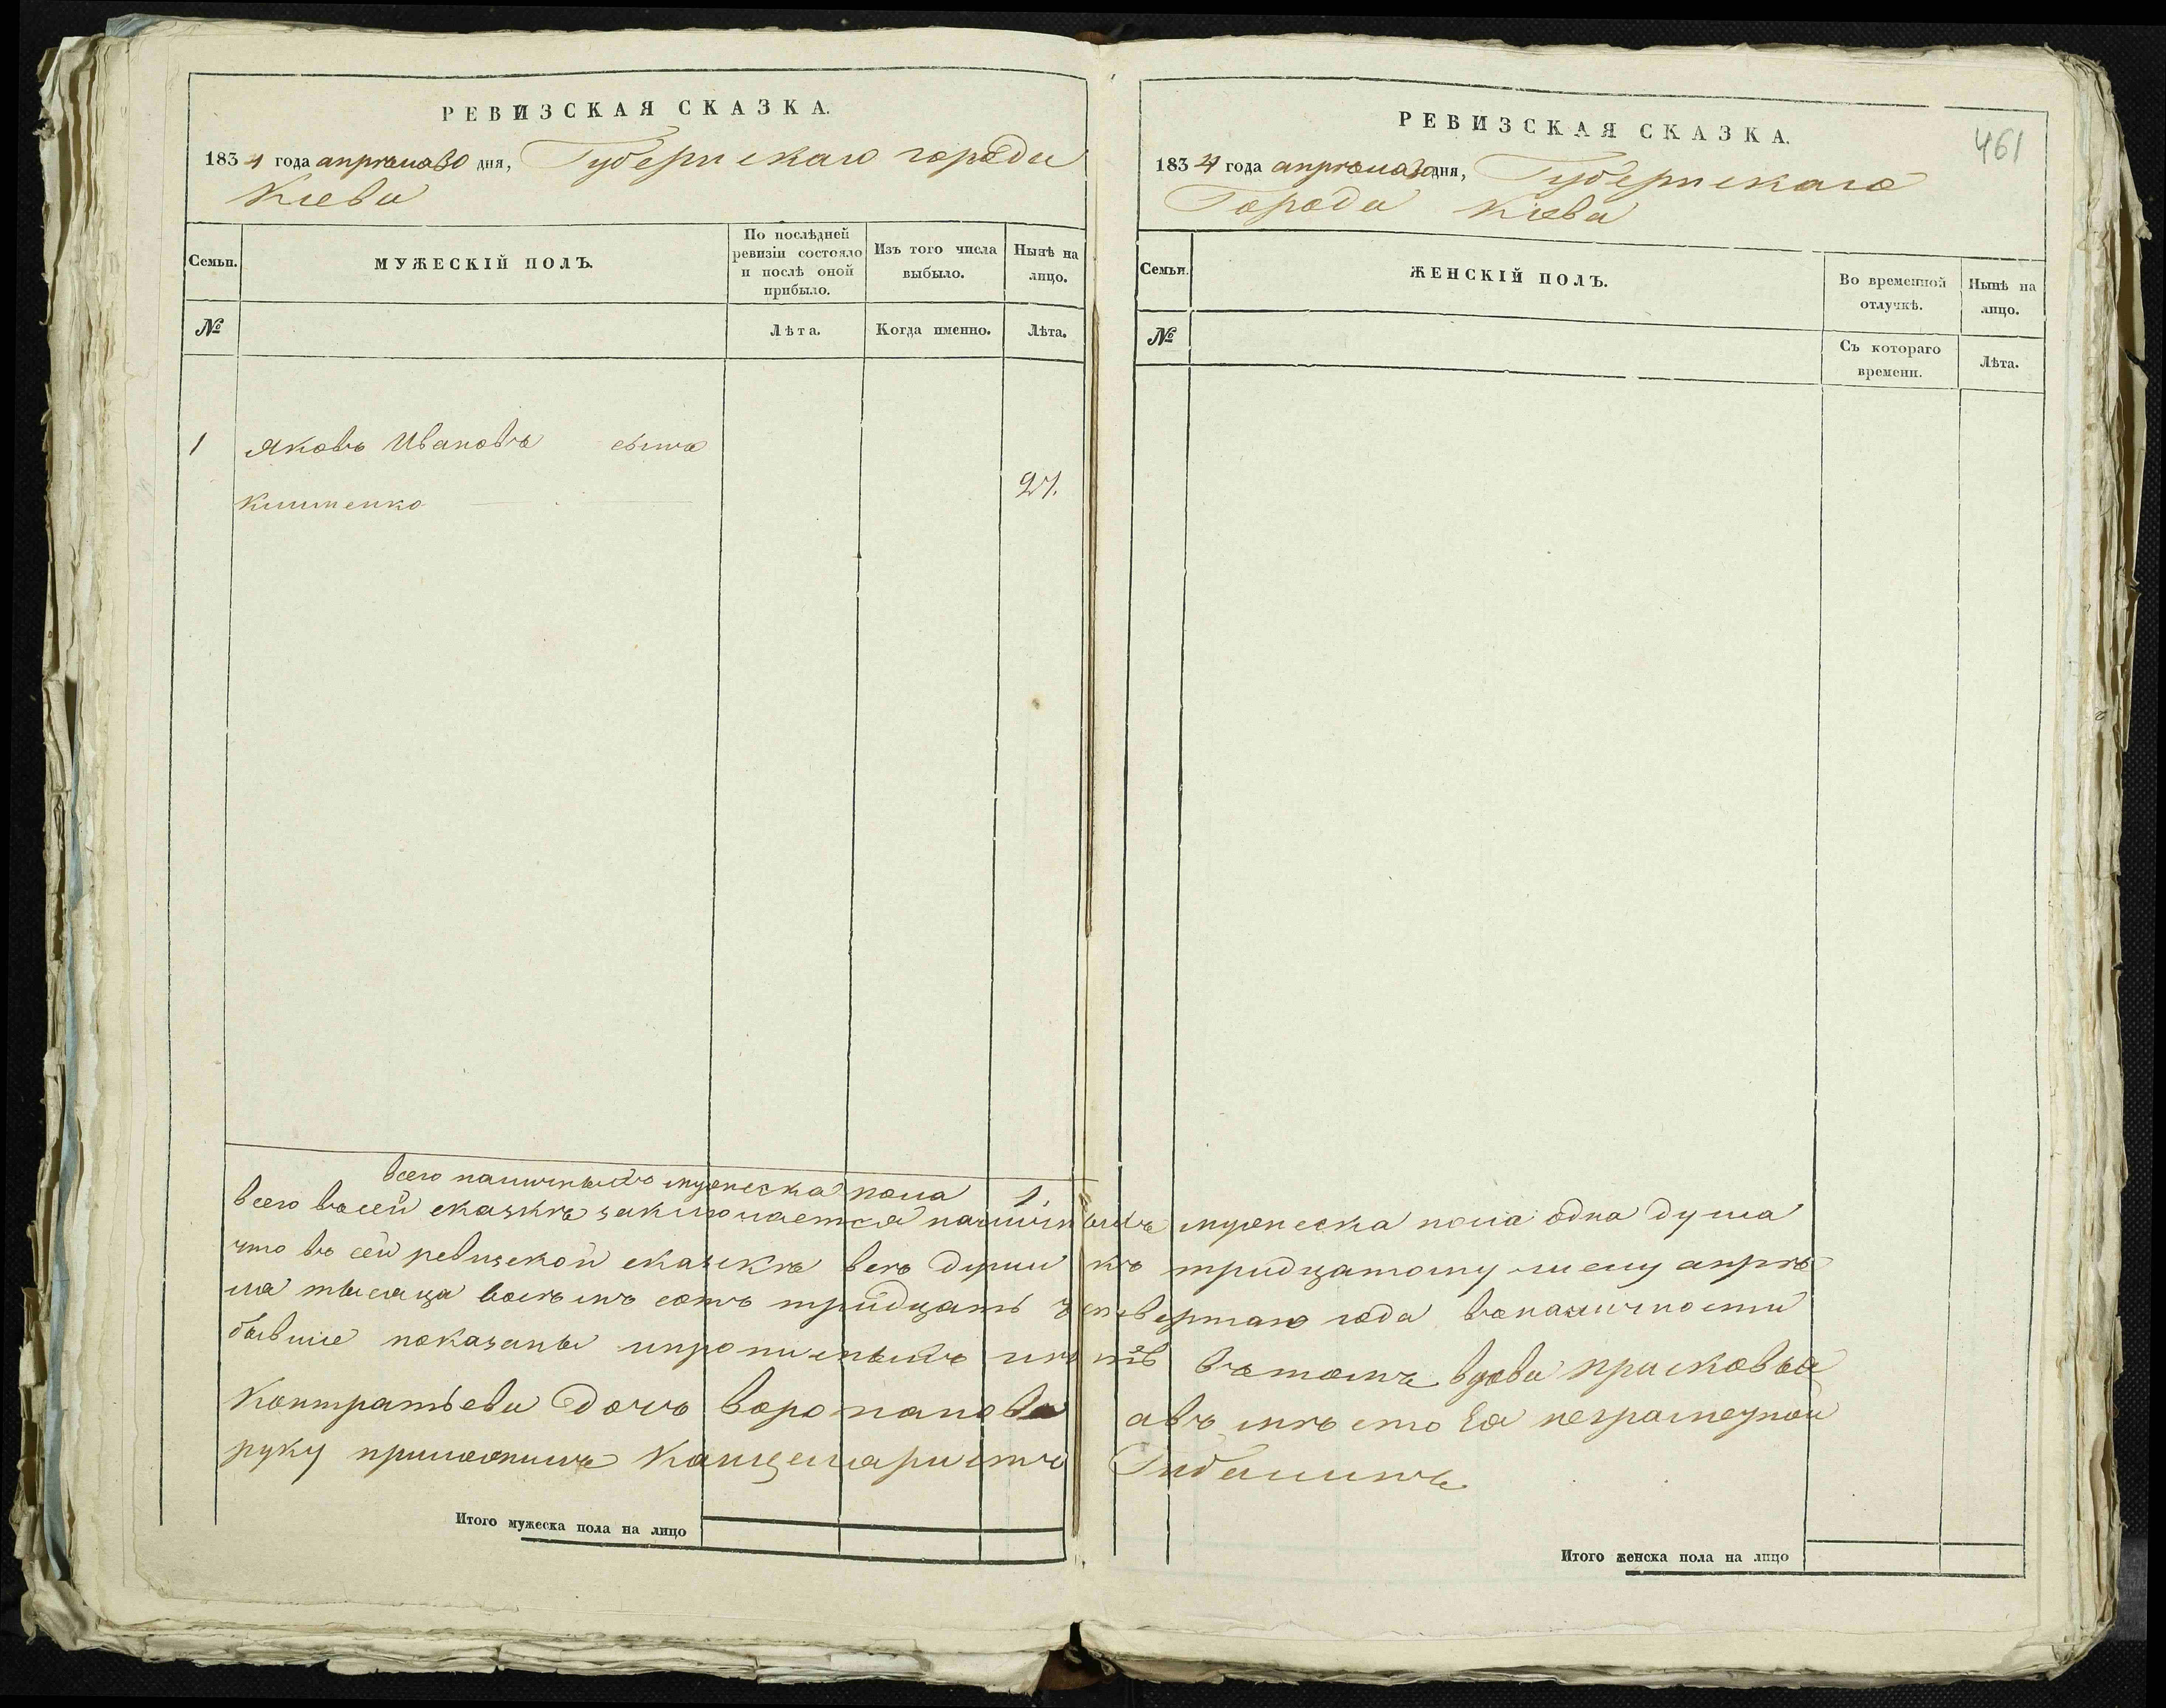 РЕВИЗСКАЯ СКАЗКА.
1834 года апреля 30 дня, Губернскаго города
Киева
Семьи.
МУЖЕСКІЙ ПОЛЪ.
По послѣдней ревизіи состояло и послѣ оной прибыло.
Изъ того числа выбыло.
Нынѣ на лицо.
№
Лѣта.
Когда именно.
Лѣта.
1 Яковъ Ивановъ сынъ
27.
всего наличныхъ мужеска пола 1.
Итого мужеска пола на лицо
461
РЕВИЗСКАЯ СКАЗКА.
1834 года апреля 30 дня, Губернскаго
Города Киева
Семьи.
ЖЕНСКІЙ ПОЛЪ.
Во временной отлучкѣ.
Нынѣ на лицо.
№
Съ котораго времени.
Лѣта.
всего въ сей сказкѣ заключается наличныхъ мужеска пола одна душа
что въ сей ревизской сказкѣ всѣ души къ тридцатому числу апрѣ
ля тысяча восемъ сотъ тридцать четвертаго года въ наличности
бывшіе показаны и прописныхъ нѣтъ въ томъ вдова Прасковья
Контратьева дочь а вмѣсто ея неграмотной
руку приложилъ Канцеляристъ
Итого женска пола на лицо